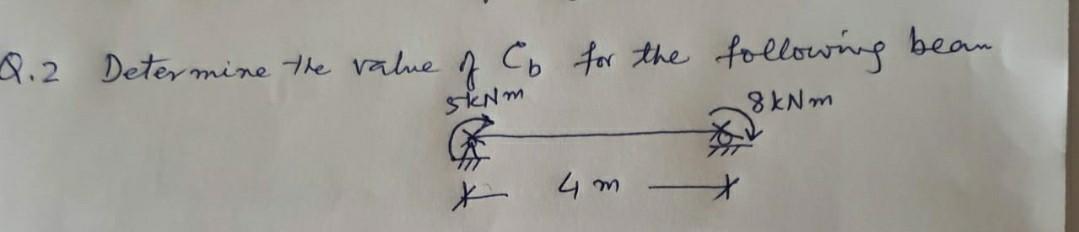 Q.2 Determine the value of Cb for the following beam
5kNm 8kNm
4 m